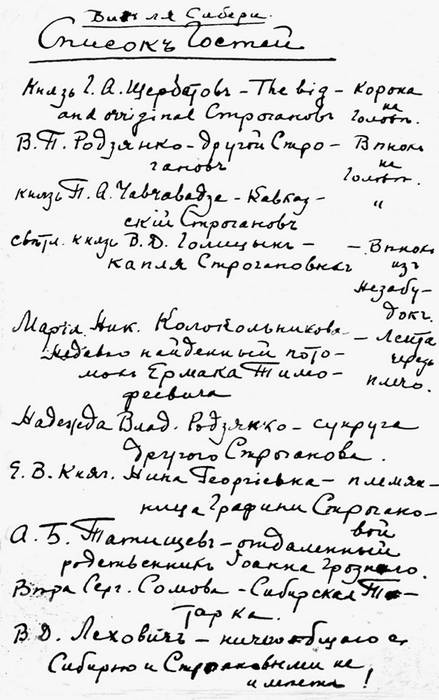 Вокругъ Сибери.
Списокъ Гостей
Князь Г. А. Щербатовъ – The big – Корона
and original Строгановъ на Головѣ.
В. П. Родзянко – другой Стро- Вѣнокъ
гановъ на Головѣ.
князь П. А. Чавчавадзе – Кавказ- "
скій Строгановъ
свѣтл. князь В. Д. Голицынъ – – Вѣнокъ
капля Строгановыхъ изъ
незабу-
докъ.
Марія Ник. Колокольникова – Лента
Недавно найденный пото- черезъ
мокъ Ермака Тимо- плечо.
феевича
Надежда Влад. Родзянко – супруга
другого Строганова.
Е. В. Княг. Нина Георгіевна – племян-
ница Графини Строгано-
вой
А. Б. Татищевъ – отдаленный
родственникъ Іоанна Грознаго.
Вѣра Серг. Сомова – Сибирская Та-
тарка.
В. Д. Леховичъ – ничего общаго съ
Сибирью и Строгановыми не
имѣетъ!